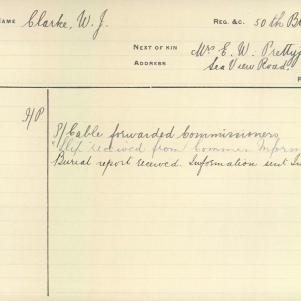 NAME Clarke, W. J. REG. &C. 50th B
NEXT OF KIN Mrs E. W. Prettyj
ADDRESS Sea View Road.
I/P
P/Cable forwarded Commissioners
"Slip" received from Commsn Inform
Burial report received. Information sent